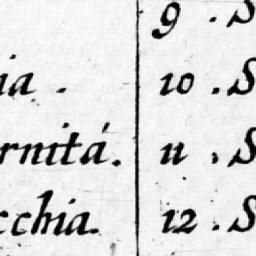 9 . S
ia . 10 . S
rnitá. 11 . S
cchia. 12 . S